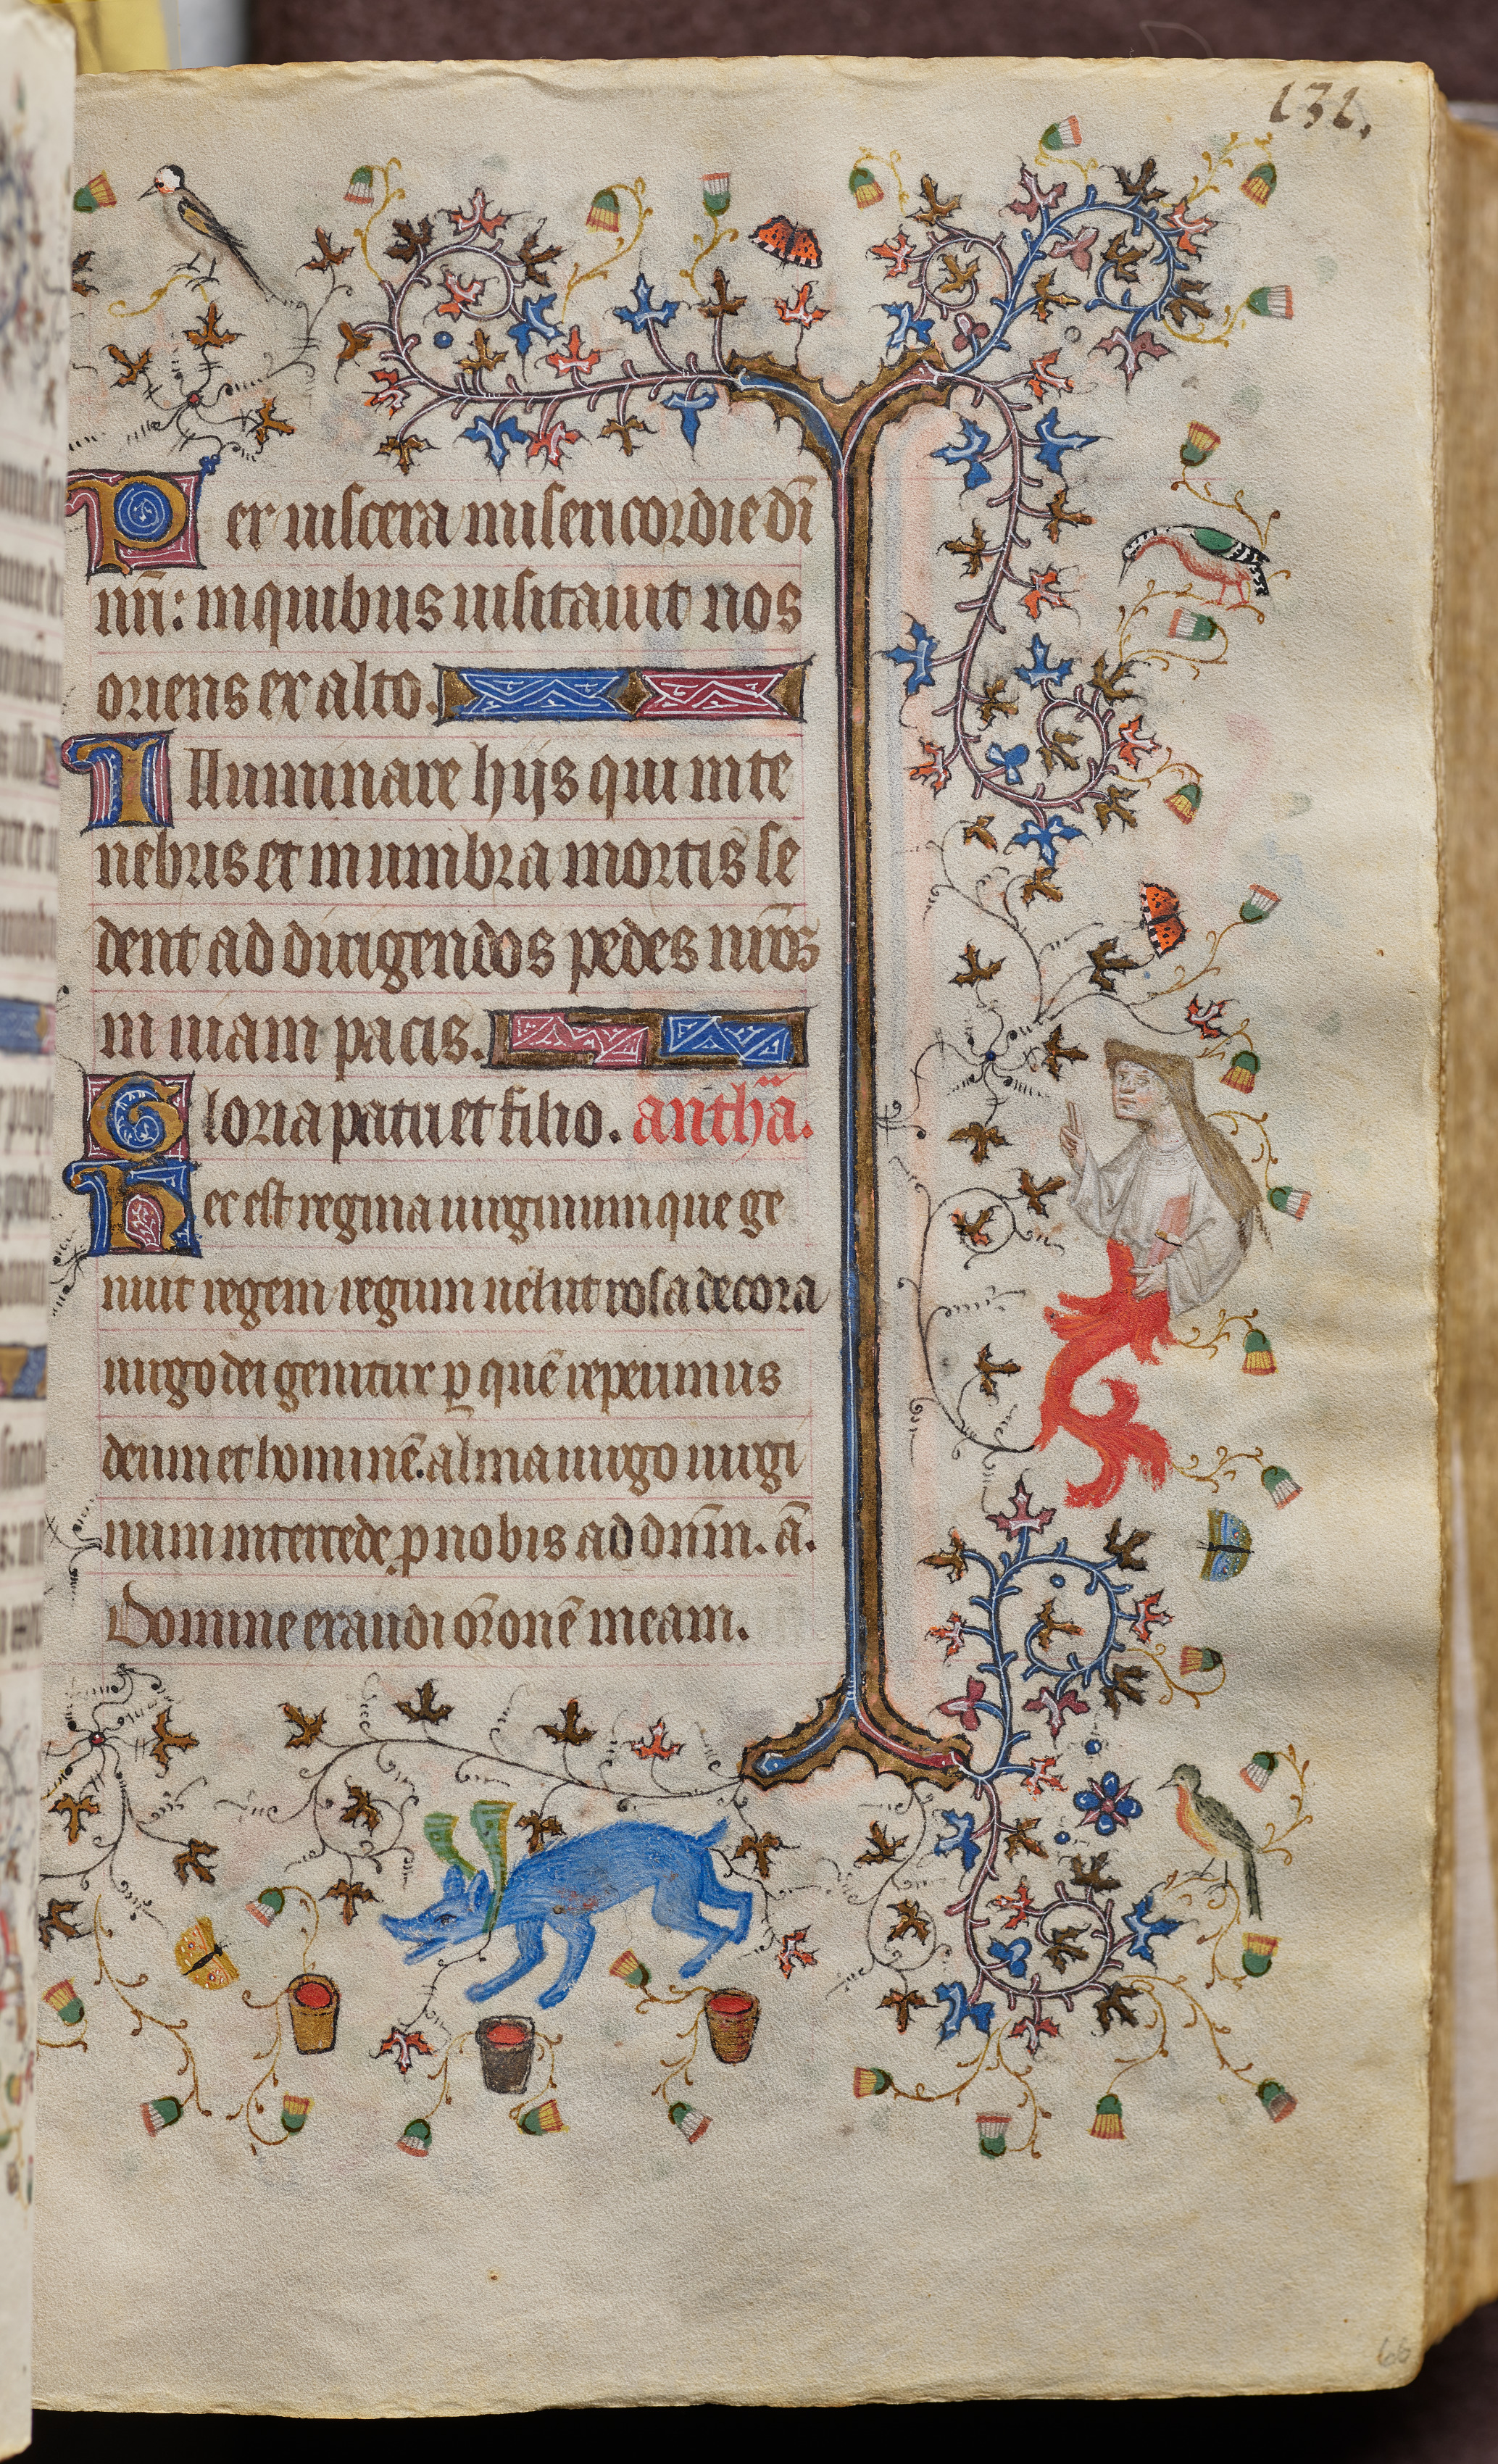 131.
Per viscera misericordie dī
nrī: in quibus visitavit nos
oriens ex alto.
Illuminare hijs qui in te
nebris et in umbra mortis se
dent ad dirigendos pedes nr̄os
in viam pacis.
Gloria patri et filio. anth̄a.
Hec est regina virginum que ge
nuit regem regum velut rosa decora
virgo dei genitrix ꝑ quē reperimus
deum et hominē. alma virgo virgi
num intercede ꝓ nobis ad dn̄m. ā.
Domine exaudi or̄onē meam.
66